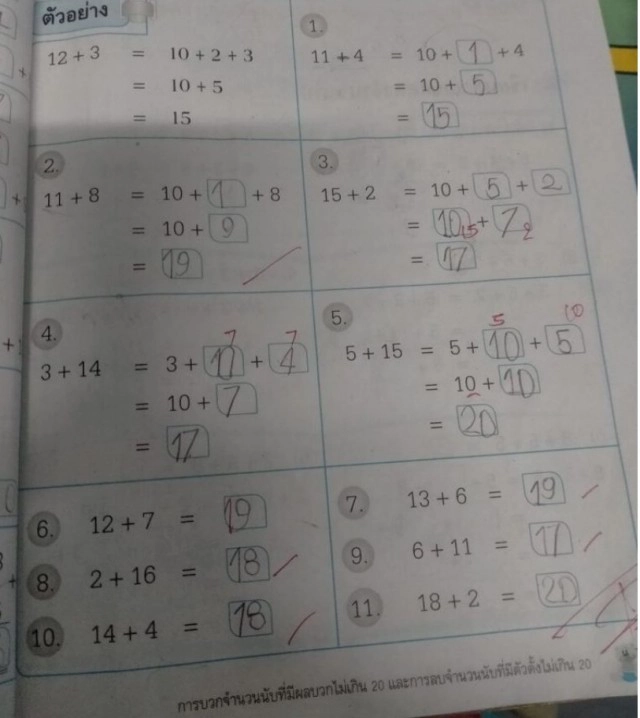 ตัวอย่าง
12 + 3 = 10 + 2 + 3
= 10 + 5
= 15
1.
11 + 4 = 10 + 1 + 4
= 10 + 5
= 15
2.
11 + 8 = 10 + 1 + 8
= 10 + 9
= 19
3.
15 + 2 = 10 + 5 + 2
= 10 15 + 7 2
= 17
4.
7 7
3 + 14 = 3 + 10 + 4
= 10 + 7
= 17
5.
5 10
5 + 15 = 5 + 10 + 5
= 10 + 10
= 20
6. 12 + 7 = 19
7. 13 + 6 = 19
8. 2 + 16 = 18
9. 6 + 11 = 17
10. 14 + 4 = 18
11. 18 + 2 = 20
การบวกจำนวนนับที่มีผลบวกไม่เกิน 20 และการลบจำนวนนับที่มีตัวตั้งไม่เกิน 20